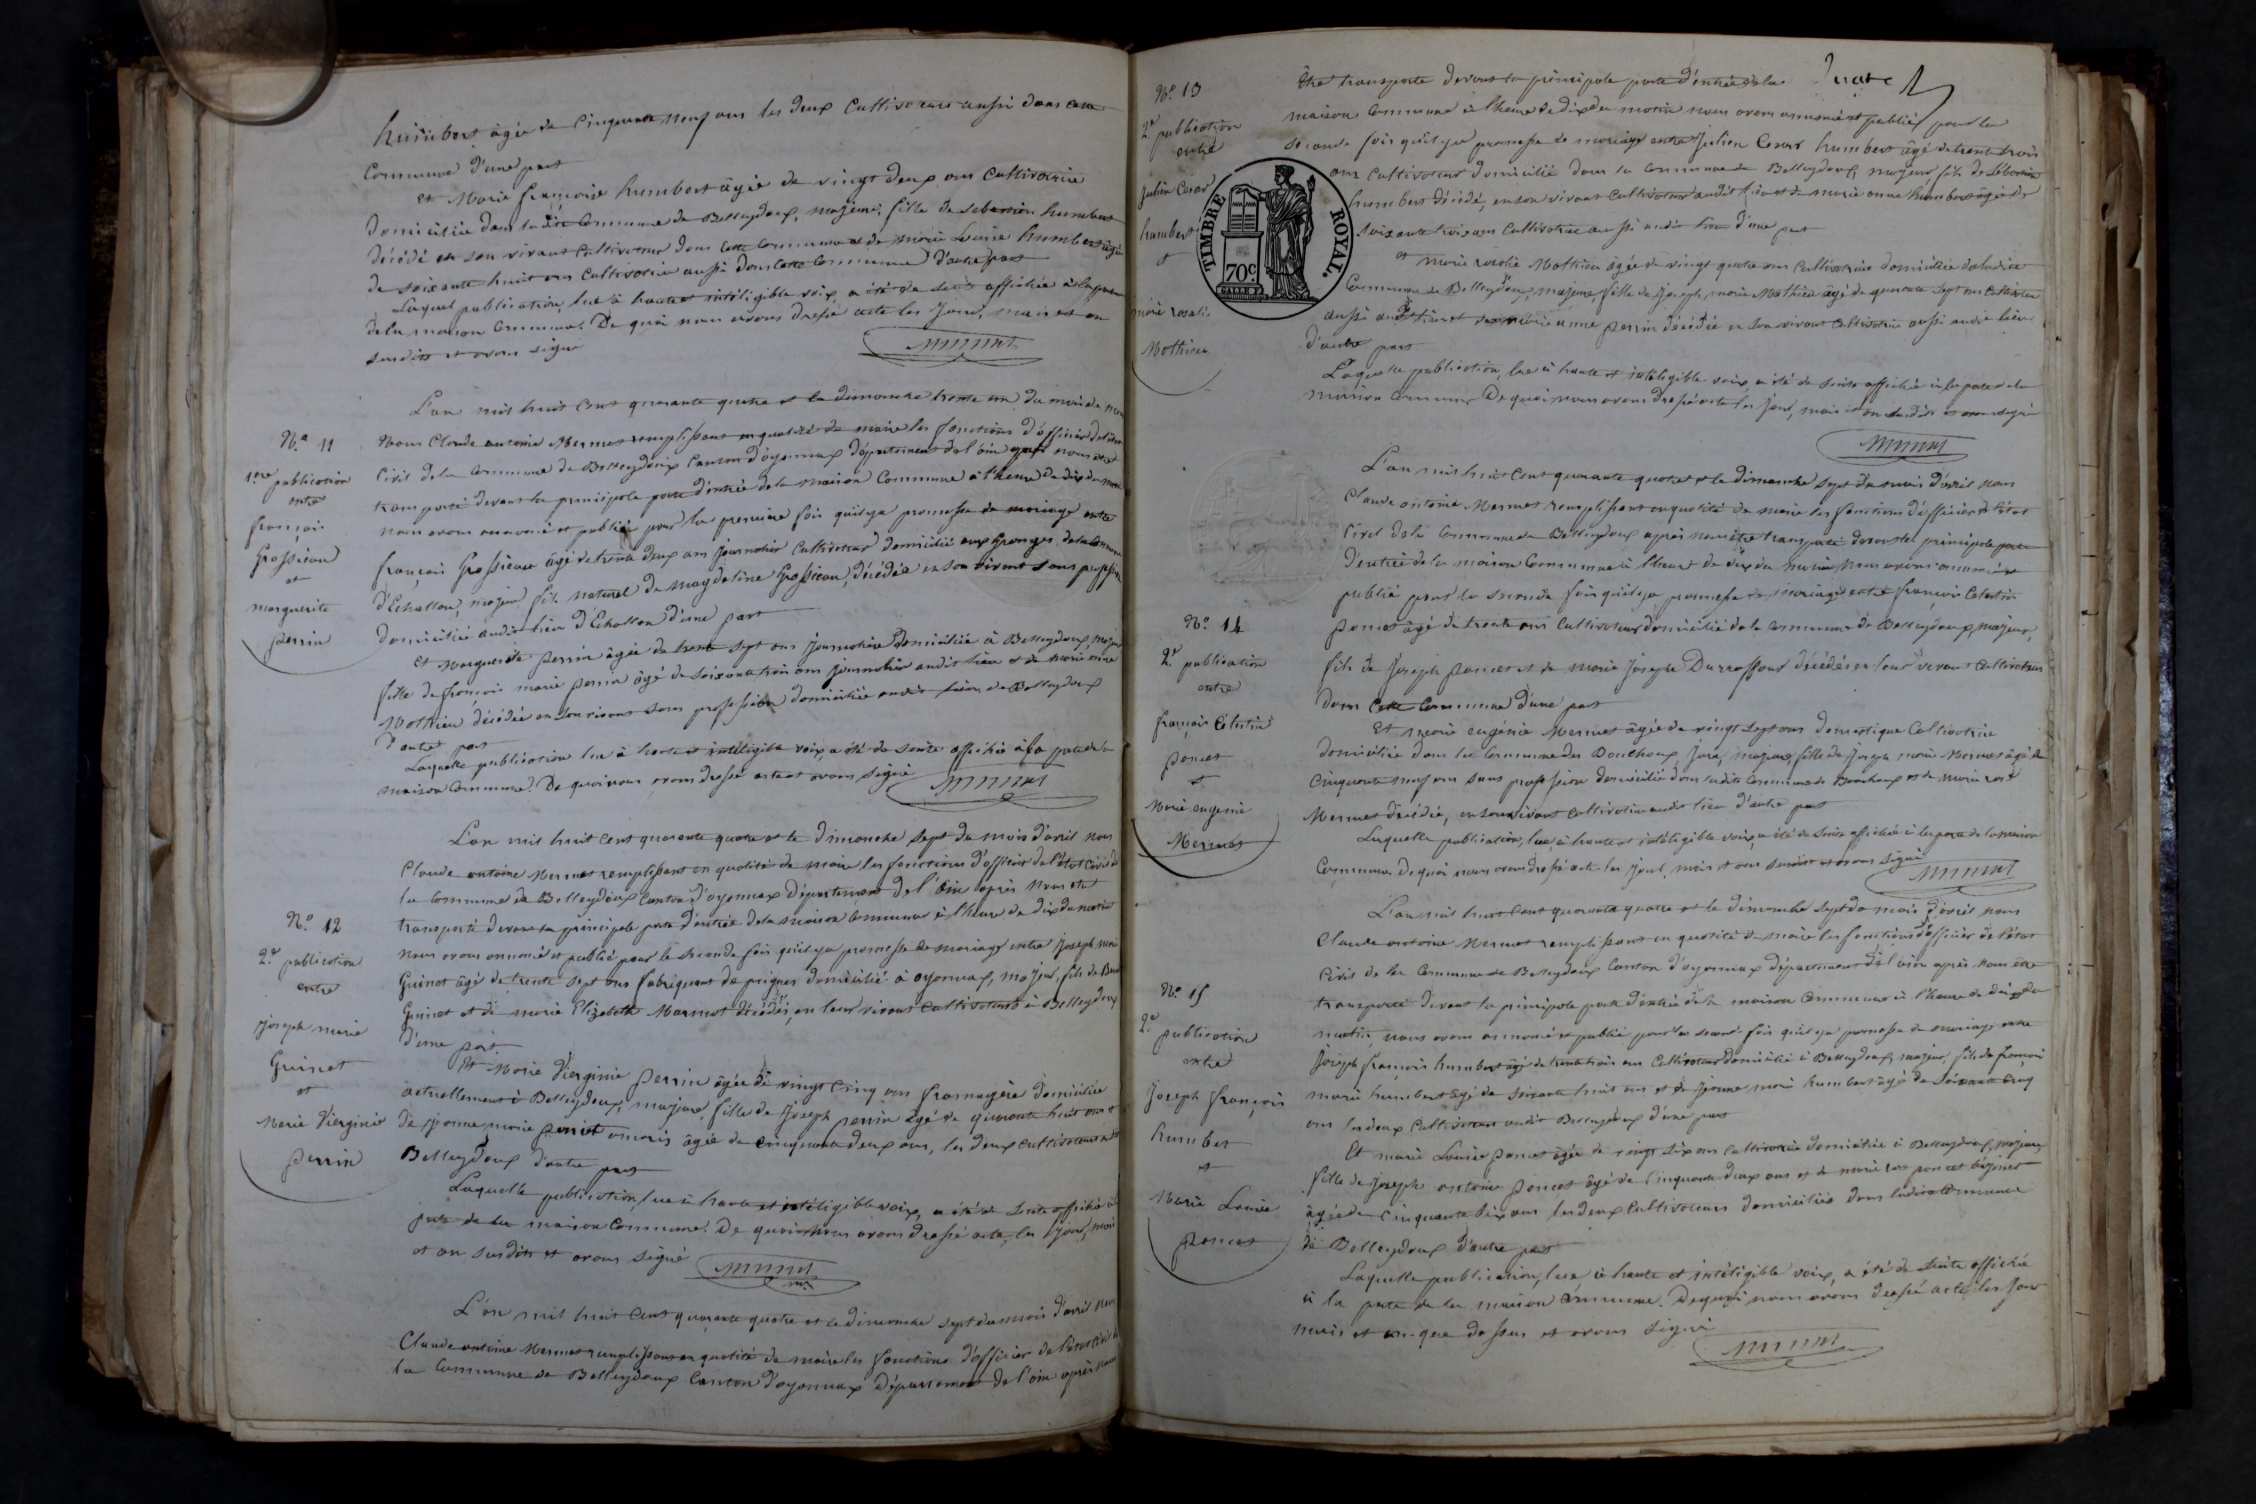 humbert âgée de Cinquante neuf ans les deux Cultivateurs aussi dans cette
Commune d'une part
et Marie françoise humbert âgée de vingt deux ans Cultivatrice
domiciliée dans ladite Commune de Belleydoux, majeure, fille de Sebastien humbert
décédé en son vivant Cultivateur dans cette Commune et de marie Louise humbert âgée
de soixante huit ans Cultivatrice aussi dans cette Commune d'autre part
Laquel publication, lue à haute et intéligible voix, a été de suite affichée à la porte
de la maison Commune. De quoi nous avons dressé acte les Jour, mois et an
susdits et avons signé
L'an mil huit Cent quarante quatre et le dimanche trente un du mois de mars
N.º 11
1ère publication
entre
françois
Grossieau
et
marguerite
perrin
Nous Claude antoine Mermet remplissant en qualité de maire les fonctions d'officier de l'état
Civil de la Commune de Belleydoux Canton d'oyonnax Département de l'ain après nous être
transporté devant la principale porte d'entrée de la maison Commune à l'heure de dix du matin
nous avons annoncé et publié pour la première fois qu'il y a promesse de mariage entre
françois Grossieau âgé de trente deux ans journalier Cultivateur domicilié aux Granges de la Commune
d'Echallon, majeur fils naturel de magdeleine Grossieau, décédée en son vivant sans profession
domiciliée audit lieu d'Echallon d'une part
et Marguerite perrin âgée de trente sept ans journalière domiciliée à Belleydoux, majeure
fille de françois marie perrin âgé de soixante trois ans journalier audit lieu et de marie
Mathieu décédée en son vivant sans profession domiciliée audit lieu de Belleydoux
d'autre part
Laquelle publication lue à haute et intéligible voix, a été de suite affichée à la porte de la
maison Commune. De quoi nous avons dressé acte et avons signé
L'an mil huit Cent quarante quatre et le Dimanche sept du mois d'avril nous
Claude antoine Mermet remplissant en qualité de maire les fonctions d'officier de l'état Civil de
la Commune de Belleydoux Canton d'oyonnax Département de l'ain après nous être
N.º 12
2e publication
entre
joseph marie
Guinet
et
Marie Vierginie
perrin
transporté devant la principale porte d'entrée de la maison Commune à l'heure de dix du matin
nous avons annoncé et publié pour la seconde fois qu'il y a promesse de mariage entre Joseph marie
Guinet âgé de trente sept ans fabriquant de peignes domicilié à oyonnax, majeur, fils de
Guinet et de marie Elizabeth Mermet décédés, en leur vivant Cultivateurs à Belleydoux
d'une part
Et Marie Vierginie perrin âgée de vingt Cinq ans fromagère domiciliée
actuellement à Belleydoux, majeure, fille de Joseph perrin âgé de quarante huit ans et
de jeanne marie âgée de Cinquante deux ans, les deux Cultivateurs à
Belleydoux d'autre part
Laquelle publication, lue à haute et intéligible voix, a été de suite affichée à la
porte de la maison Commune. De quoi nous avons dressé acte, les jour, mois
et an susdits et avons signé
L'an mil huit Cent quarante quatre et le dimanche sept du mois d'avril nous
Claude antoine Mermet remplissant en qualité de maire les fonctions d'officier de l'état Civil de
la Commune de Belleydoux Canton d'oyonnax Département de l'ain après nous
N.º 13
2e publication
entre
Julien Cesar
humbert
et
marie rosalie
Mathieu
être transporté devant la principale porte d'entrée de la quatre
maison Commune à l'heure de dix du matin nous avons annoncé et publié pour la
seconde fois qu'il y a promesse de mariage entre Julien Cesar humbert âgé de trente trois
ans Cultivateur domicilié dans la Commune de Belleydoux, majeur, fils de
humbert décédé, en son vivant Cultivateur audit lieu et de marie anne humbert âgée de
soixante trois ans Cultivatrice aussi audit lieu d'une part
et marie rosalie Mathieu âgée de vingt quatre ans Cultivatrice domiciliée dans ladite
Commune de Belleydoux, majeure fille de Joseph marie Mathieu âgé de quarante sept ans Cultivateur
aussi audit lieu et de marie anne perrin décédée en son vivant Cultivatrice aussi audit lieu
d'autre part
Laquelle publication, lue à haute et intéligible voix, a été de suite affichée à la porte de la
maison Commune. De quoi nous avons dressé acte les jour, mois et an susdits et avons signé
TIMBRE ROYAL.
70c
L'an mil huit Cent quarante quatre et le dimanche sept du mois d'avril nous
Claude antoine Mermet remplissant en qualité de maire les fonctions d'officier de l'état
Civil de la Commune de Belleydoux après nous être transporté devant la principale porte
d'entrée de la maison Commune à l'heure de dix du matin nous avons annoncé et
publié pour la seconde fois qu'il y a promesse de mariage entre françois Celestin
N.º 14
2e publication
entre
françois Célestin
poncet
et
Marie eugenie
Mermet
poncet âgé de trente ans Cultivateur domicilié de la Commune de Belleydoux, majeur,
fils de Joseph poncet et de Marie Josephe Durraffour décédés en leur vivant Cultivateurs
dans Cette Commune d'une part
Et marie eugénie Mermet âgée de vingt sept ans domestique Cultivatrice
domiciliée dans la Commune des Bouchoux, Jura, majeure, fille de Joseph marie Mermet âgé de
Cinquante neuf ans sans profession domicilié dans ladite Commune des Bouchoux et de marie rose
Mermet décédée, en son vivant Cultivatrice audit lieu d'autre part
Laquelle publication, lue à haute et intéligible voix, a été de suite affichée à la porte de la maison
Commune, De quoi nous avons dressé acte les jour, mois et an susdits et avons signé
L'an mil huit Cent quarante quatre et le dimanche sept du mois d'avril nous
Claude antoine Mermet remplissant en qualité de maire les fonctions d'officier de l'état
Civil de la Commune de Belleydoux Canton d'oyonnax département de l'ain après nous être
N.º 15
2e
publication
entre
Joseph françois
humbert
et
Marie Louise
poncet
transporté devant la principale porte d'entrée de la maison Commune à l'heure de dix du
matin, nous avons annoncé et publié pour la seconde fois qu'il y a promesse de mariage entre
Joseph françois humbert âgé de trente trois ans Cultivateur domicilié à Belleydoux, majeur, fils de françois
marie humbert âgé de soixante huit ans et de jeanne marie humbert âgée de soixante Cinq
ans les deux Cultivateurs audit Belleydoux d'une part
Et marie Louise poncet âgée de vingt six ans Cultivatrice domiciliée à Belleydoux, majeure,
fille de Joseph antoine poncet âgé de Cinquante deux ans et de marie
âgée de Cinquante six ans les deux Cultivateurs domiciliés dans ladite Commune
de Belleydoux d'autre part
Laquelle publication, lue à haute et intéligible voix, a été de suite affichée
à la porte de la maison Commune. De quoi nous avons dressé acte, les jour
mois et an que dessus et avons signé